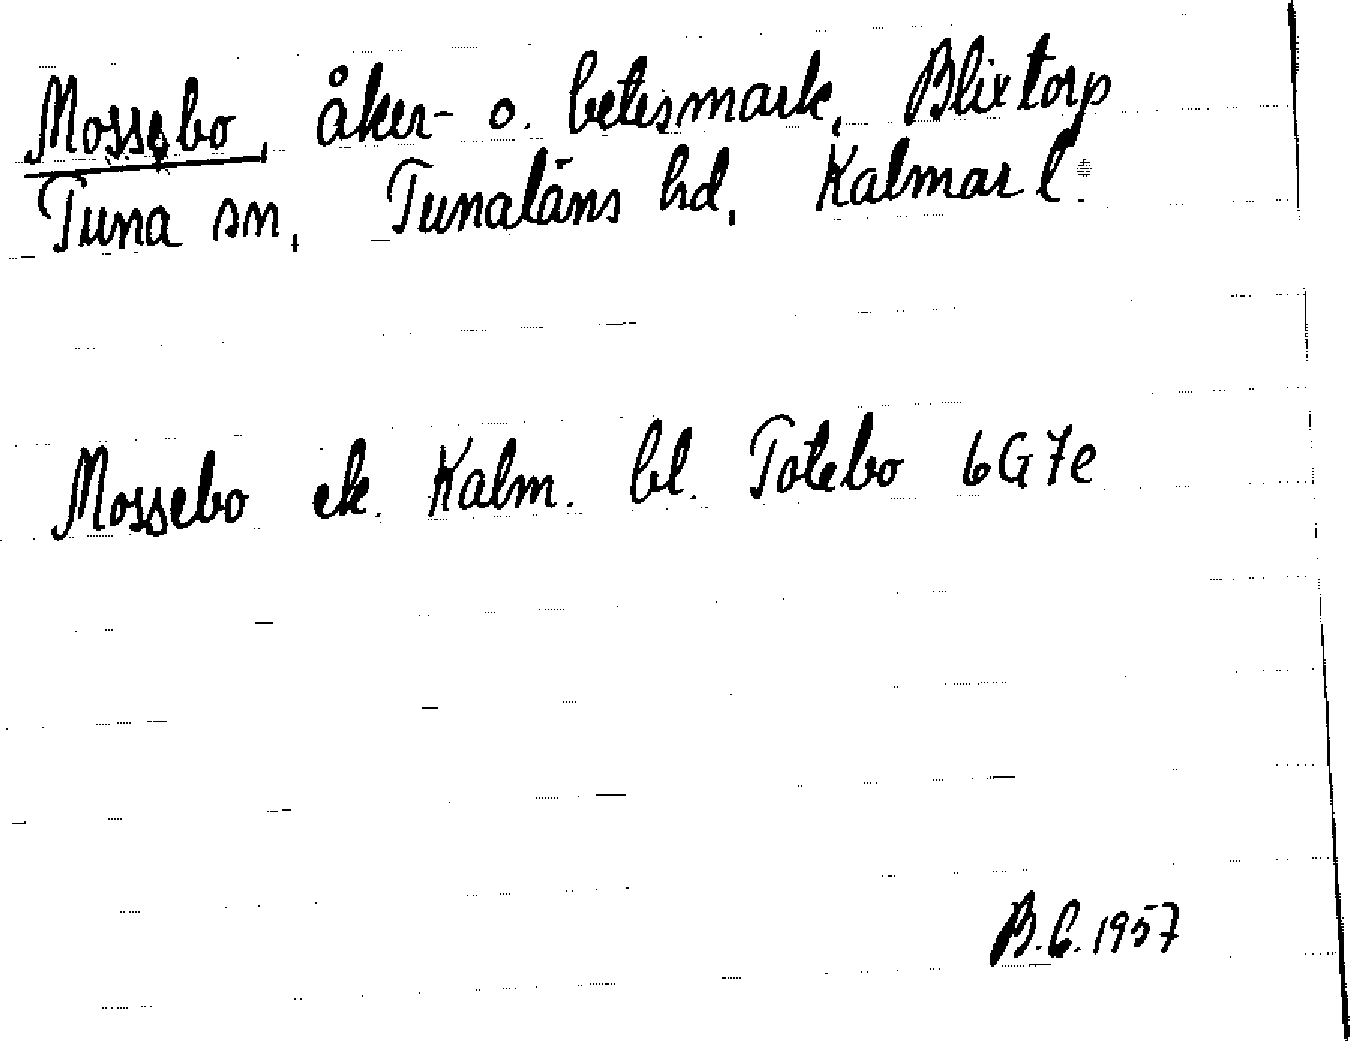 Mossebo, åker- o. betesmark, Blixtorp
Tuna sn, Tunaläns hd, Kalmar l.
Mossebo ek. Kalm. bl. Totebo 6G7e
B.C. 1957